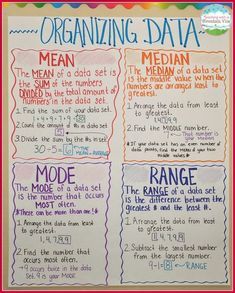 Teaching with a
Mountain View
ORGANIZING DATA
MEAN
The MEAN of a data set
is the SUM of the numbers
DIVIDED by the total amount
of numbers in the data set.
1. Find the sum of your data set.
2. Count the amount of #s in data set
3. Divide the sum by the #s in set.
30÷5=6
MEAN
MEDIAN
The MEDIAN of a data set
is the middle value when the
numbers are arranged least to
greatest.
1. Arrange the data from least
to greatest.
2. Find the MIDDLE number.
That number
is your median!
*If your data set has an even number of
data points, find the mean of your two
middle values.*
MODE
The MODE of a data set
is the number that occurs
MOST often.
*There can be more than one!*
1. Arrange the data from least
to greatest.
1,4,7,9,9
2. Find the number that
occurs most often.
→9 occurs twice in the data
set. 9 is your MODE
RANGE
The RANGE of a data set
is the difference between the
greatest # and the least #.
1. Arrange the data from
least to greatest.
1,4,7,9,9
2. Subtract the smallest number
from the largest number.
9-1=8 RANGE